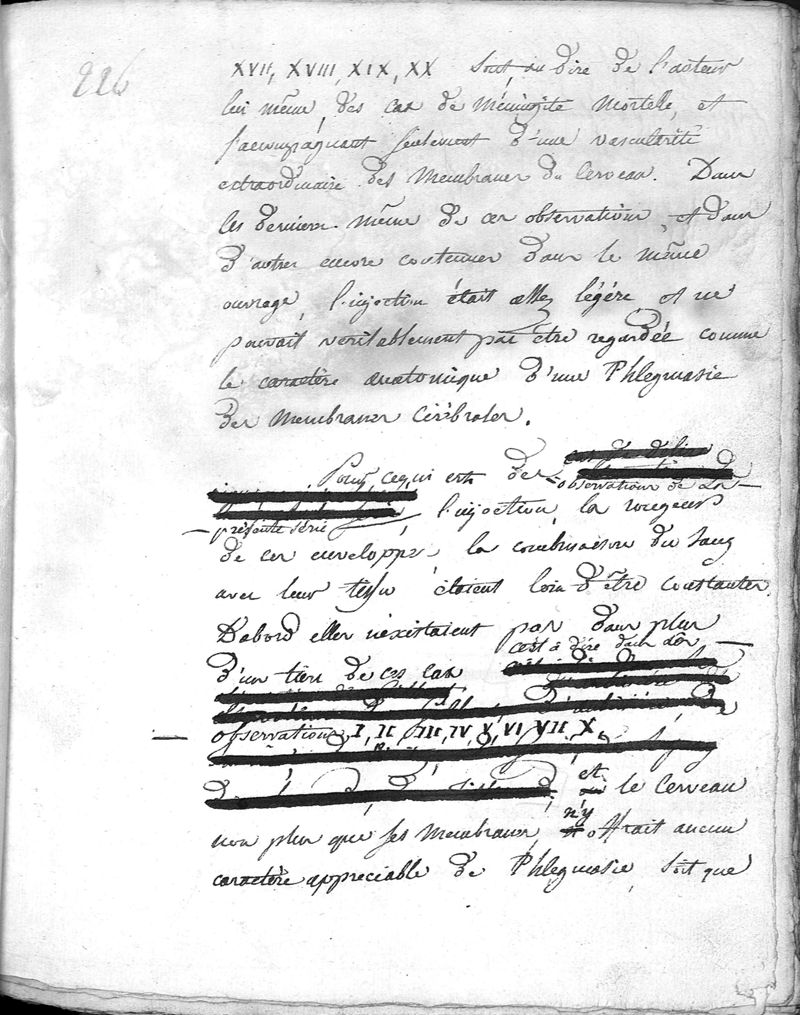 226
XVII, XVIII, XIX, XX sont, au dire de l'auteur
lui même, des cas de méningite mortelle, et
s'accompagnant seulement d'une vascularité
extraordinaire des membranes du cerveau. Dans
les dernieres même de ces observations, et dans
d'autres encore contenues dans le même
ouvrage, l'injection était assez légére et ne
pouvait veritablement pas être regardée comme
le caractère anatomique d'une Phlegmasie
des membranes cérébrales.
Pour ce qui est des
observations de la
présente série, l'injection, la rougeur
de ces enveloppes, la combinaison du sang
avec leur tissu étoient loin d'être constantes.
D'abord elles n'existaient pas dans plus
d'un tiers de ces cas c'est à dire dans les
observations I, II, III, IV, V, VI, VII, X,
et le cerveau
non plus que ses membranes, n'y offrait aucun
caractère appreciable de Phlegmasie, soit que